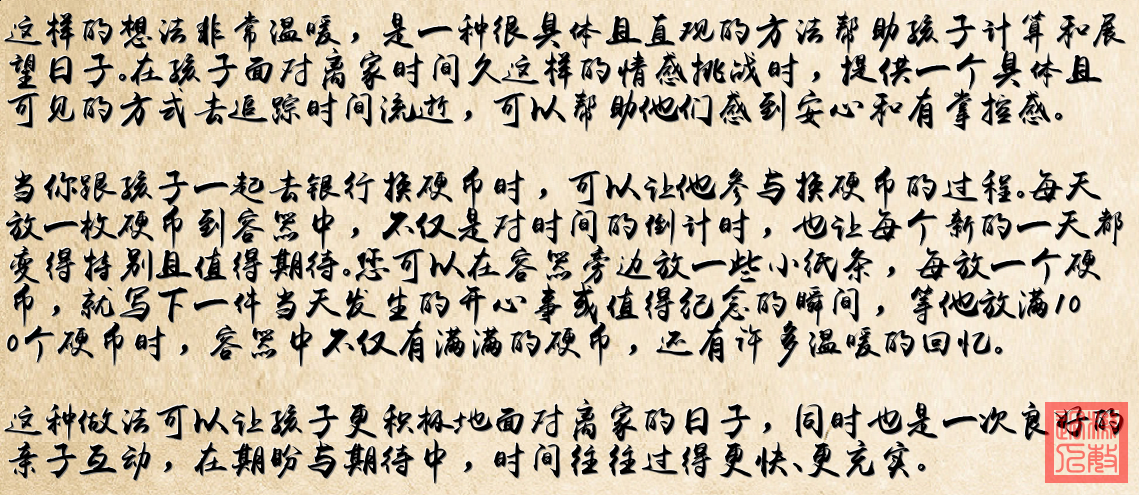 这样的想法非常温暖，是一种很具体且直观的方法帮助孩子计算和展
望日子。在孩子面对离家时间久这样的情感挑战时，提供一个具体且
可见的方式去追踪时间流逝，可以帮助他们感到安心和有掌控感。
当你跟孩子一起去银行换硬币时，可以让他参与换硬币的过程。每天
放一枚硬币到容器中，不仅是对时间的倒计时，也让每个新的一天都
变得特别且值得期待。您可以在容器旁边放一些小纸条，每放一个硬
币，就写下一件当天发生的开心事或值得纪念的瞬间，等他放满10
0个硬币时，容器中不仅有满满的硬币，还有许多温暖的回忆。
这种做法可以让孩子更积极地面对离家的日子，同时也是一次良好的
亲子互动，在期盼与期待中，时间往往过得更快、更充实。